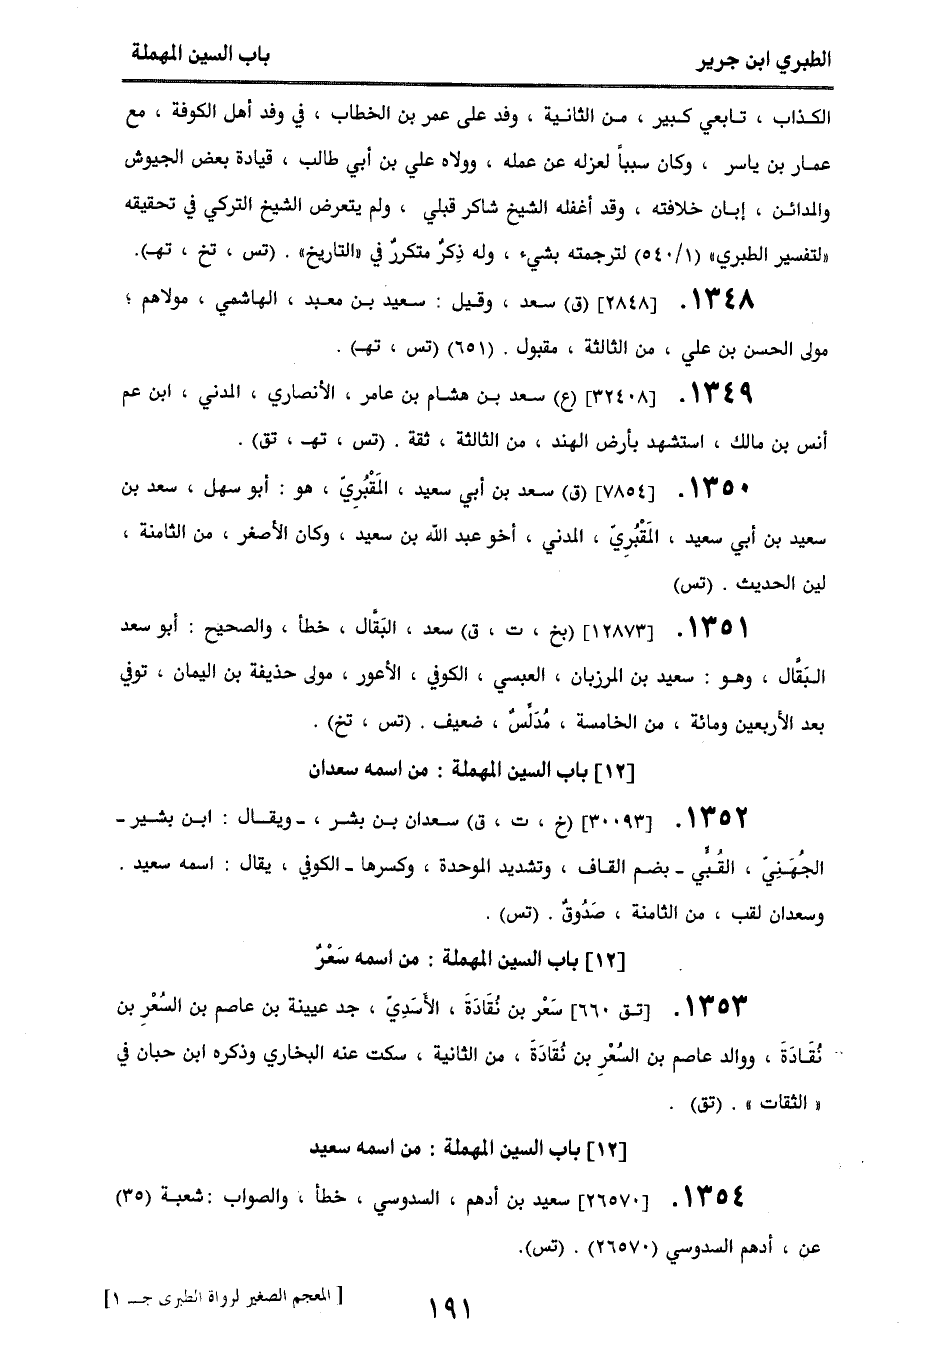 الطبري ابن جرير
باب السين المهملة
الكذاب ، تابعي كبير ، من الثانية ، وفد على عمر بن الخطاب ، في وفد أهل الكوفة ، مع
عمار بن ياسر ، وكان سبباً لعزله عن عمله ، وولاه علي بن أبي طالب ، قيادة بعض الجيوش
والمدائن ، إبان خلافته ، وقد أغفله الشيخ شاكر قبلي ، ولم يتعرض الشيخ التركي في تحقيقه
«لتفسير الطبري» (١/ ٥٤٠) لترجمته بشيء ، وله ذِكرٌ متكررٌ في «التاريخ» . (تس ، تخ ، تهـ).
١٣٤٨. [٢٨٤٨] (ق) سعد ، وقيل : سعيد بن معبد ، الهاشمي ، مولاهم ؛
مولى الحسن بن علي ، من الثالثة ، مقبول . (٦٥١) (تس ، تهـ) .
١٣٤٩. [٣٢٤٠٨] (ع) سعد بن هشام بن عامر ، الأنصاري ، المدني ، ابن عم
أنس بن مالك ، استشهد بأرض الهند ، من الثالثة ، ثقة . (تس ، تهـ ، تق) .
١٣٥٠. [٧٨٥٤] (ق) سعد بن أبي سعيد ، المَقْبُرِيّ ، هو : أبو سهل ، سعد بن
سعيد بن أبي سعيد ، المَقْبُرِيّ ، المدني ، أخو عبد الله بن سعيد ، وكان الأصغر ، من الثامنة ،
لين الحديث . (تس)
١٣٥١. [١٢٨٧٣] (بخ ، ت ، ق) سعد ، البَقَّال ، خطأ ، والصحيح : أبو سعد
البَقَّال ، وهو : سعيد بن المرزبان ، العبسي ، الكوفي ، الأعور ، مولى حذيفة بن اليمان ، توفي
بعد الأربعين ومائة ، من الخامسة ، مُدَلِّسٌ ، ضعيف . (تس ، تخ) .
[١٢] باب السين المهملة : من اسمه سعدان
١٣٥٢. [٣٠٠٩٣] (خ ، ت ، ق) سعدان بن بشر ، ـ ويقال : ابن بشير ـ
الجُهَنِيّ ، القُبِّي ـ بضم القاف ، وتشديد الموحدة ، وكسرها ـ الكوفي ، يقال : اسمه سعيد .
وسعدان لقب ، من الثامنة ، صَدُوقٌ . (تس) .
[١٢] باب السين المهملة : من اسمه سَعْرٌ
١٣٥٣. [تق ٦٦٠] سَعْر بن نُقَادَةَ ، الأَسَدِيّ ، جد عيينة بن عاصم بن السُعْرِ بن
نُقَادَةَ ، ووالد عاصم بن السُعْرِ بن نُقَادَةَ ، من الثانية ، سكت عنه البخاري وذكره ابن حبان في
« الثقات » . (تق) .
[١٢] باب السين المهملة : من اسمه سعيد
١٣٥٤. [٢٦٥٧٠] سعيد بن أدهم ، السدوسي ، خطأ ، والصواب : شعبة (٣٥)
عن ، أدهم السدوسي (٢٦٥٧٠) . (تس).
[ المعجم الصغير لرواة الطبري جـ ١]
١٩١